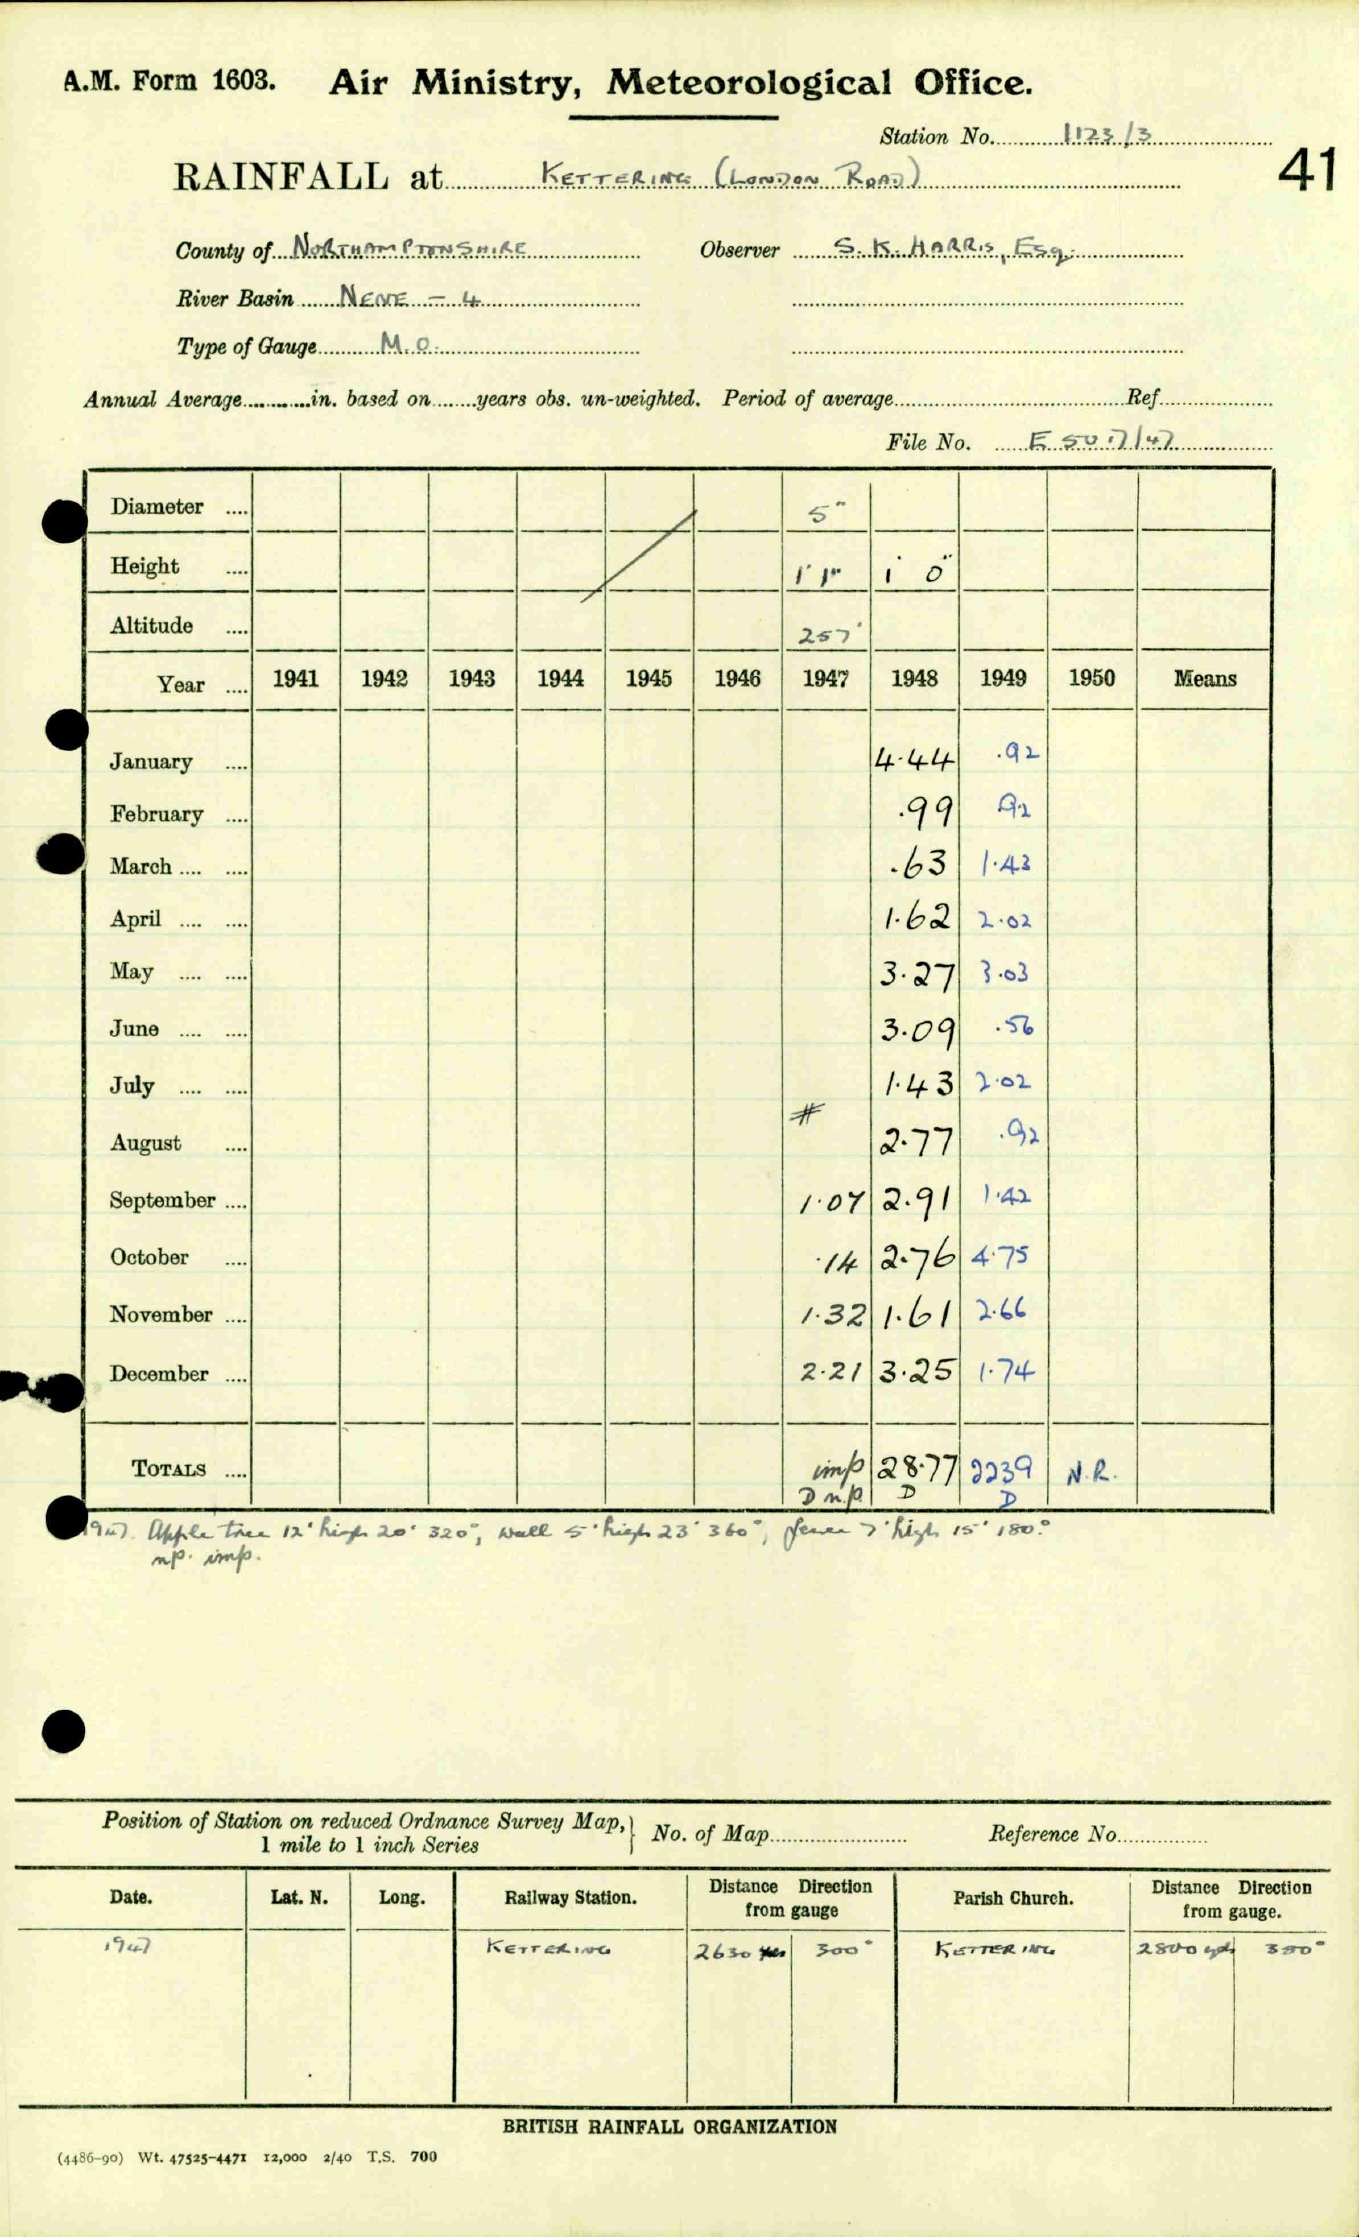 A.M. Form 1603. Air Ministry, Meteorological Office.
Station No. 1123/3
41
RAINFALL at KETTERING (LONDON ROAD)
County of NORTHAMPTONSHIRE Observer S. K. HARRIS, Esq.
River Basin NENE - 4
Type of Gauge M.O.
Annual Average in. based on years obs. un-weighted. Period of average Ref
File No.
Diameter 5"
Height 1' 1" 1' 0"
Altitude 257'
Year 1941 1942 1943 1944 1945 1946 1947 1948 1949 1950 Means
January 4.44 .92
February .99 .92
March .63 1.43
April 1.62 2.02
May 3.27 3.03
June 3.09 .56
July 1.43 2.02
#
August 2.77 .92
September 1.07 2.91 1.42
October .14 2.76 4.75
November 1.32 1.61 2.66
December 2.21 3.25 1.74
TOTALS imp 28.77 2239 N.R.
D n.p. D D
1947. Apple tree 12' high 20' 320°, wall 5' high 23' 360°, fence 7' high 15' 180°.
np. imp.
Position of Station on reduced Ordnance Survey Map, No. of Map Reference No.
1 mile to 1 inch Series
Date. Lat. N. Long. Railway Station. Distance Direction from gauge Parish Church. Distance Direction from gauge.
1947 KETTERING 2630 300° KETTERING 2800 yds
BRITISH RAINFALL ORGANIZATION
(4486-90) Wt. 47525-4471 12,000 2/40 T.S. 700